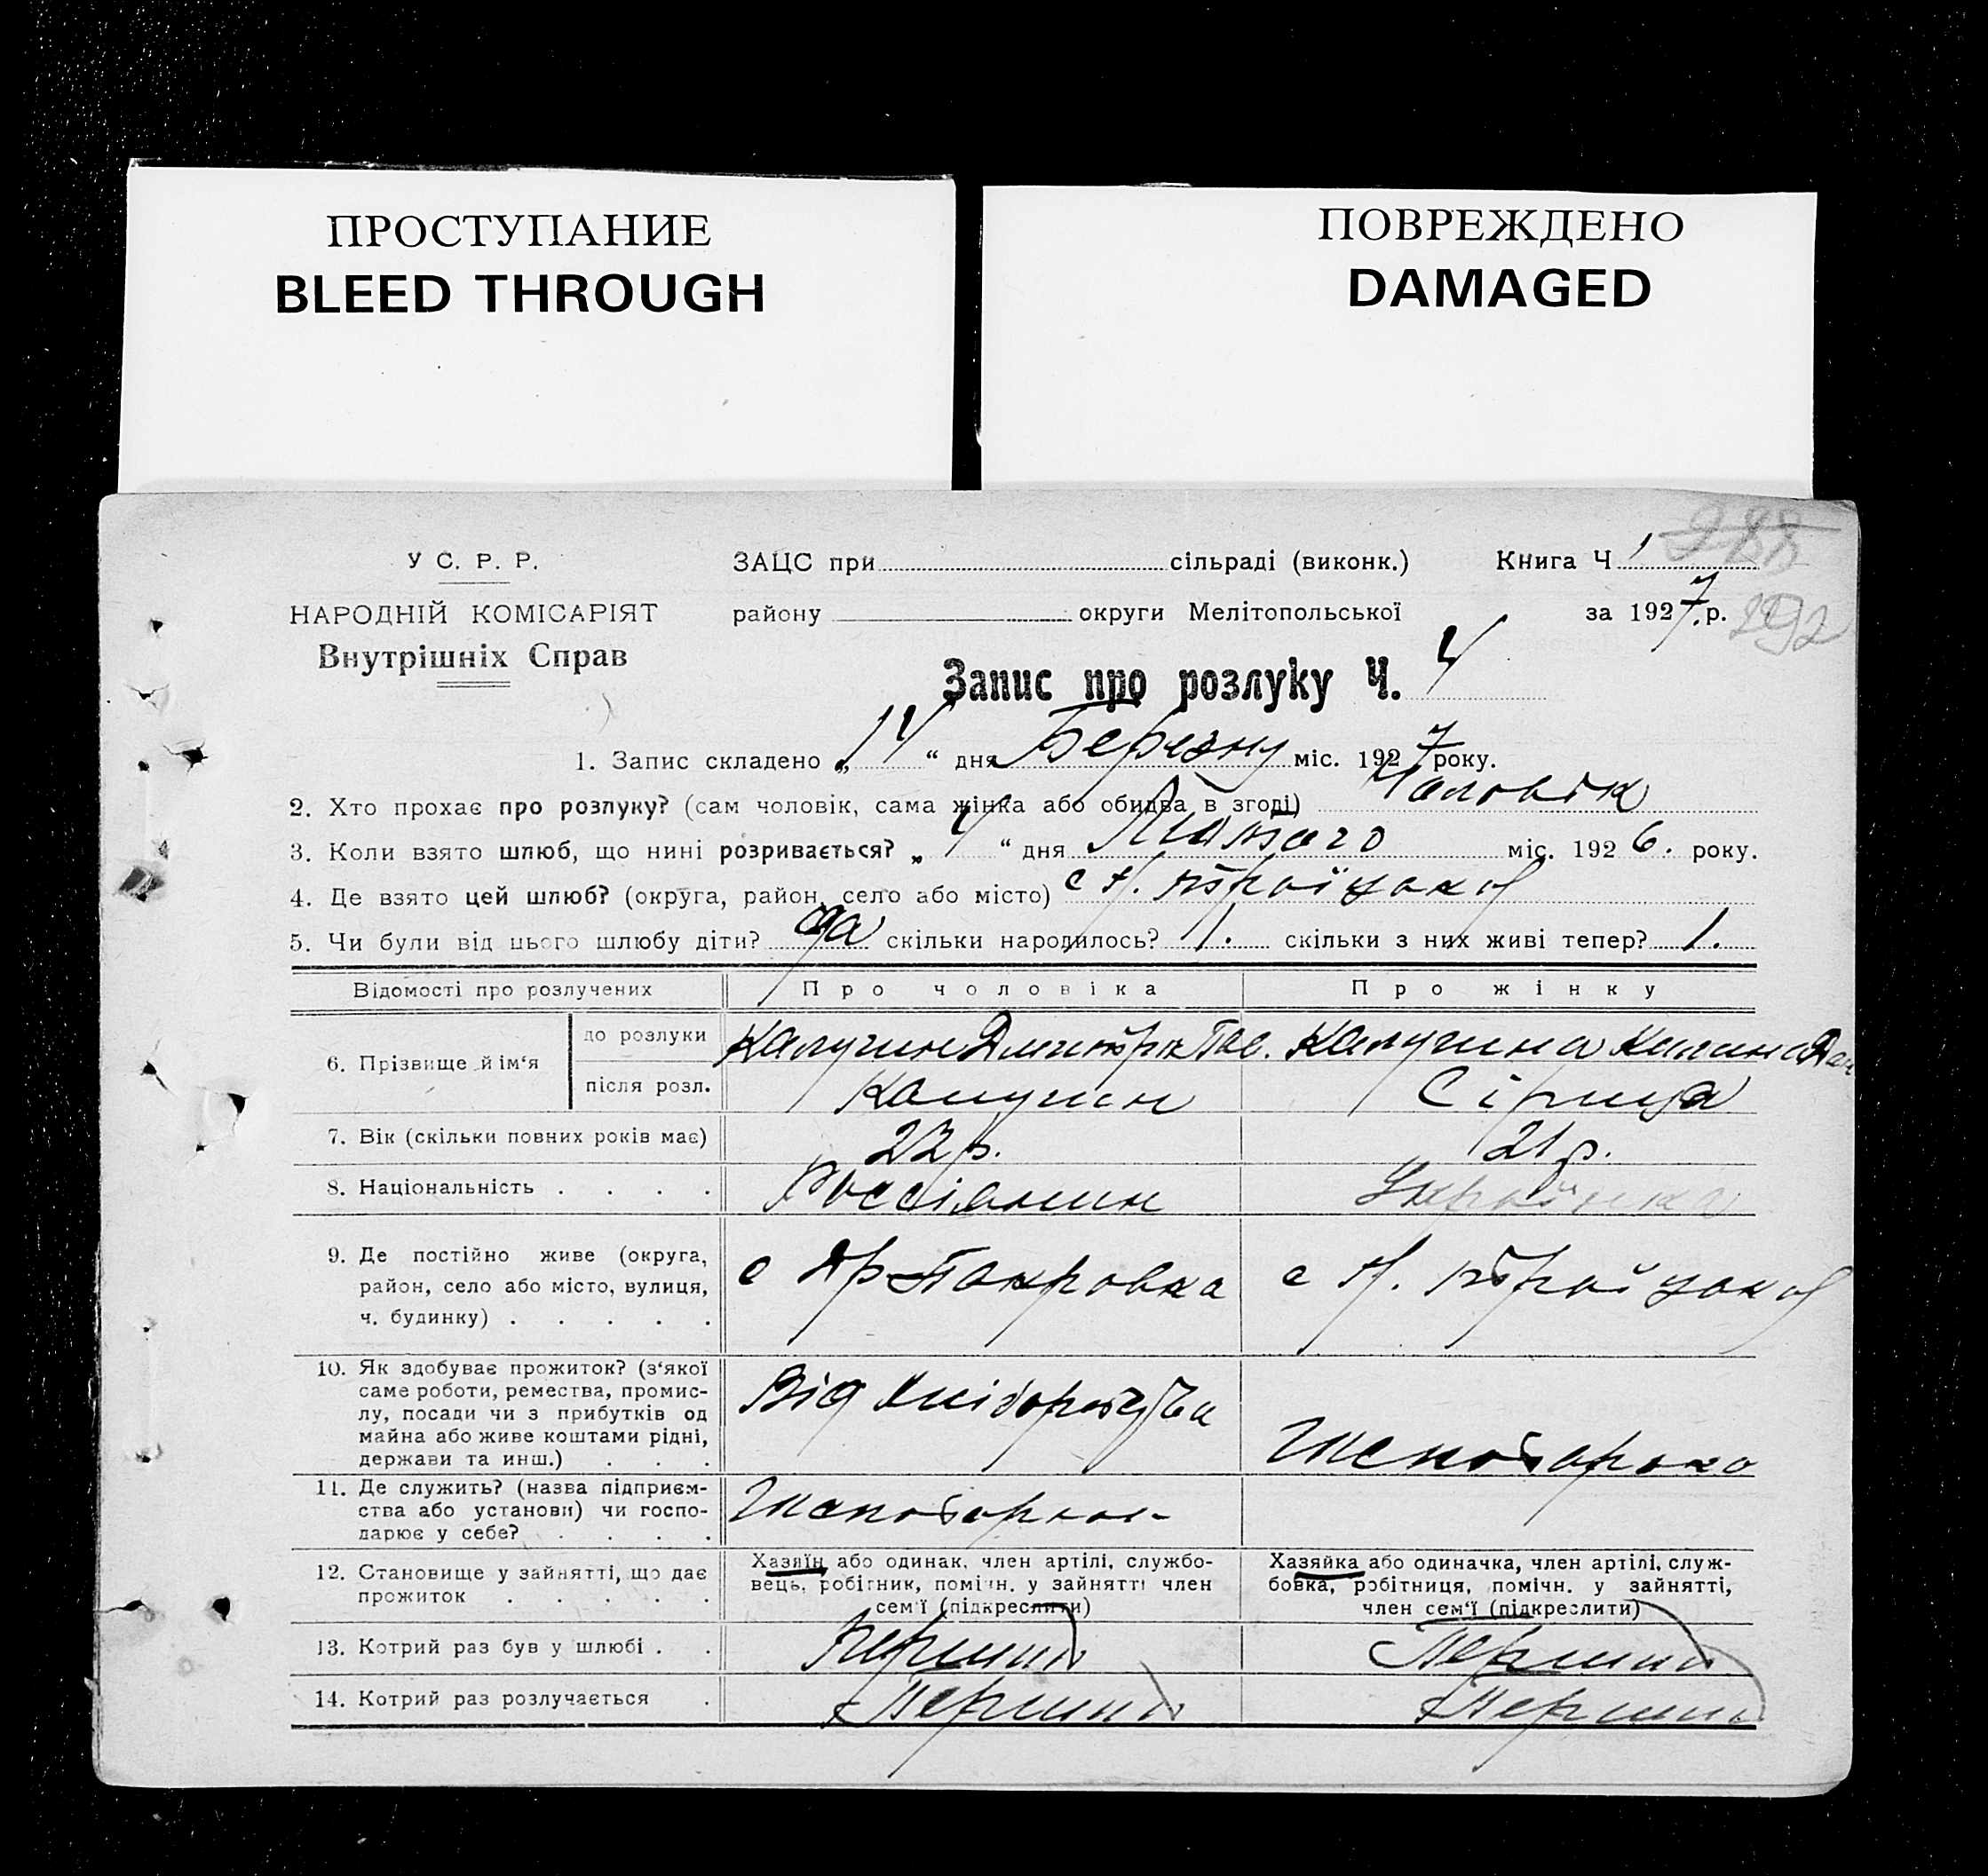 ПРОСТУПАНИЕ
BLEED THROUGH
ПОВРЕЖДЕНО
DAMAGED
У С. Р. Р.
НАРОДНІЙ КОМІСАРІЯТ
Внутрішніх Справ
ЗАЦС при сільраді (виконк.) Книга Ч 1 288
району округи Мелітопольської за 1927 р. 292
Запис про розлуку Ч. 4
1. Запис складено „14“ дня Березну міс. 1927 року.
2. Хто прохає про розлуку? (сам чоловік, сама жінка або обидва в згоді) Чоловік
3. Коли взято шлюб, що нині розривається? „4“ дня Лютого міс. 1926. року.
4. Де взято цей шлюб? (округа, район, село або місто) с Н. Троїцької
5. Чи були від цього шлюбу діти? да скільки народилось? 1. скільки з них живі тепер? 1.
Відомості про розлучених Про чоловіка Про жінку
6. Прізвище й ім'я
до розлуки Калугин Дмитрік Пав. Калугина
після розл. Калугин Сірица
7. Вік (скільки повних років має) 22 р. 21 р.
8. Національність Россіянин Українка
9. Де постійно живе (округа,
район, село або місто, вулиця,
ч. будинку)
с Покровка с Н. Троїцької
10. Як здобуває прожиток? (з'якої
саме роботи, ремества, промис-
лу, посади чи з прибутків од
майна або живе коштами рідні,
держави та инш.)
Від Хліборобства
11. Де служить? (назва підприєм-
ства або установи) чи госпо-
дарює у себе?
12. Становище у зайнятті, що дає
прожиток
Хазяїн або одинак, член артілі, службо-
вець, робітник, помічн. у зайнятті член
сем'ї (підкреслити)
Хазяйка або одиначка, член артілі, служ-
бовка, робітниця, помічн. у зайнятті,
член сем'ї (підкреслити)
13. Котрий раз був у шлюбі Перший Перший
14. Котрий раз розлучається Перший Перший